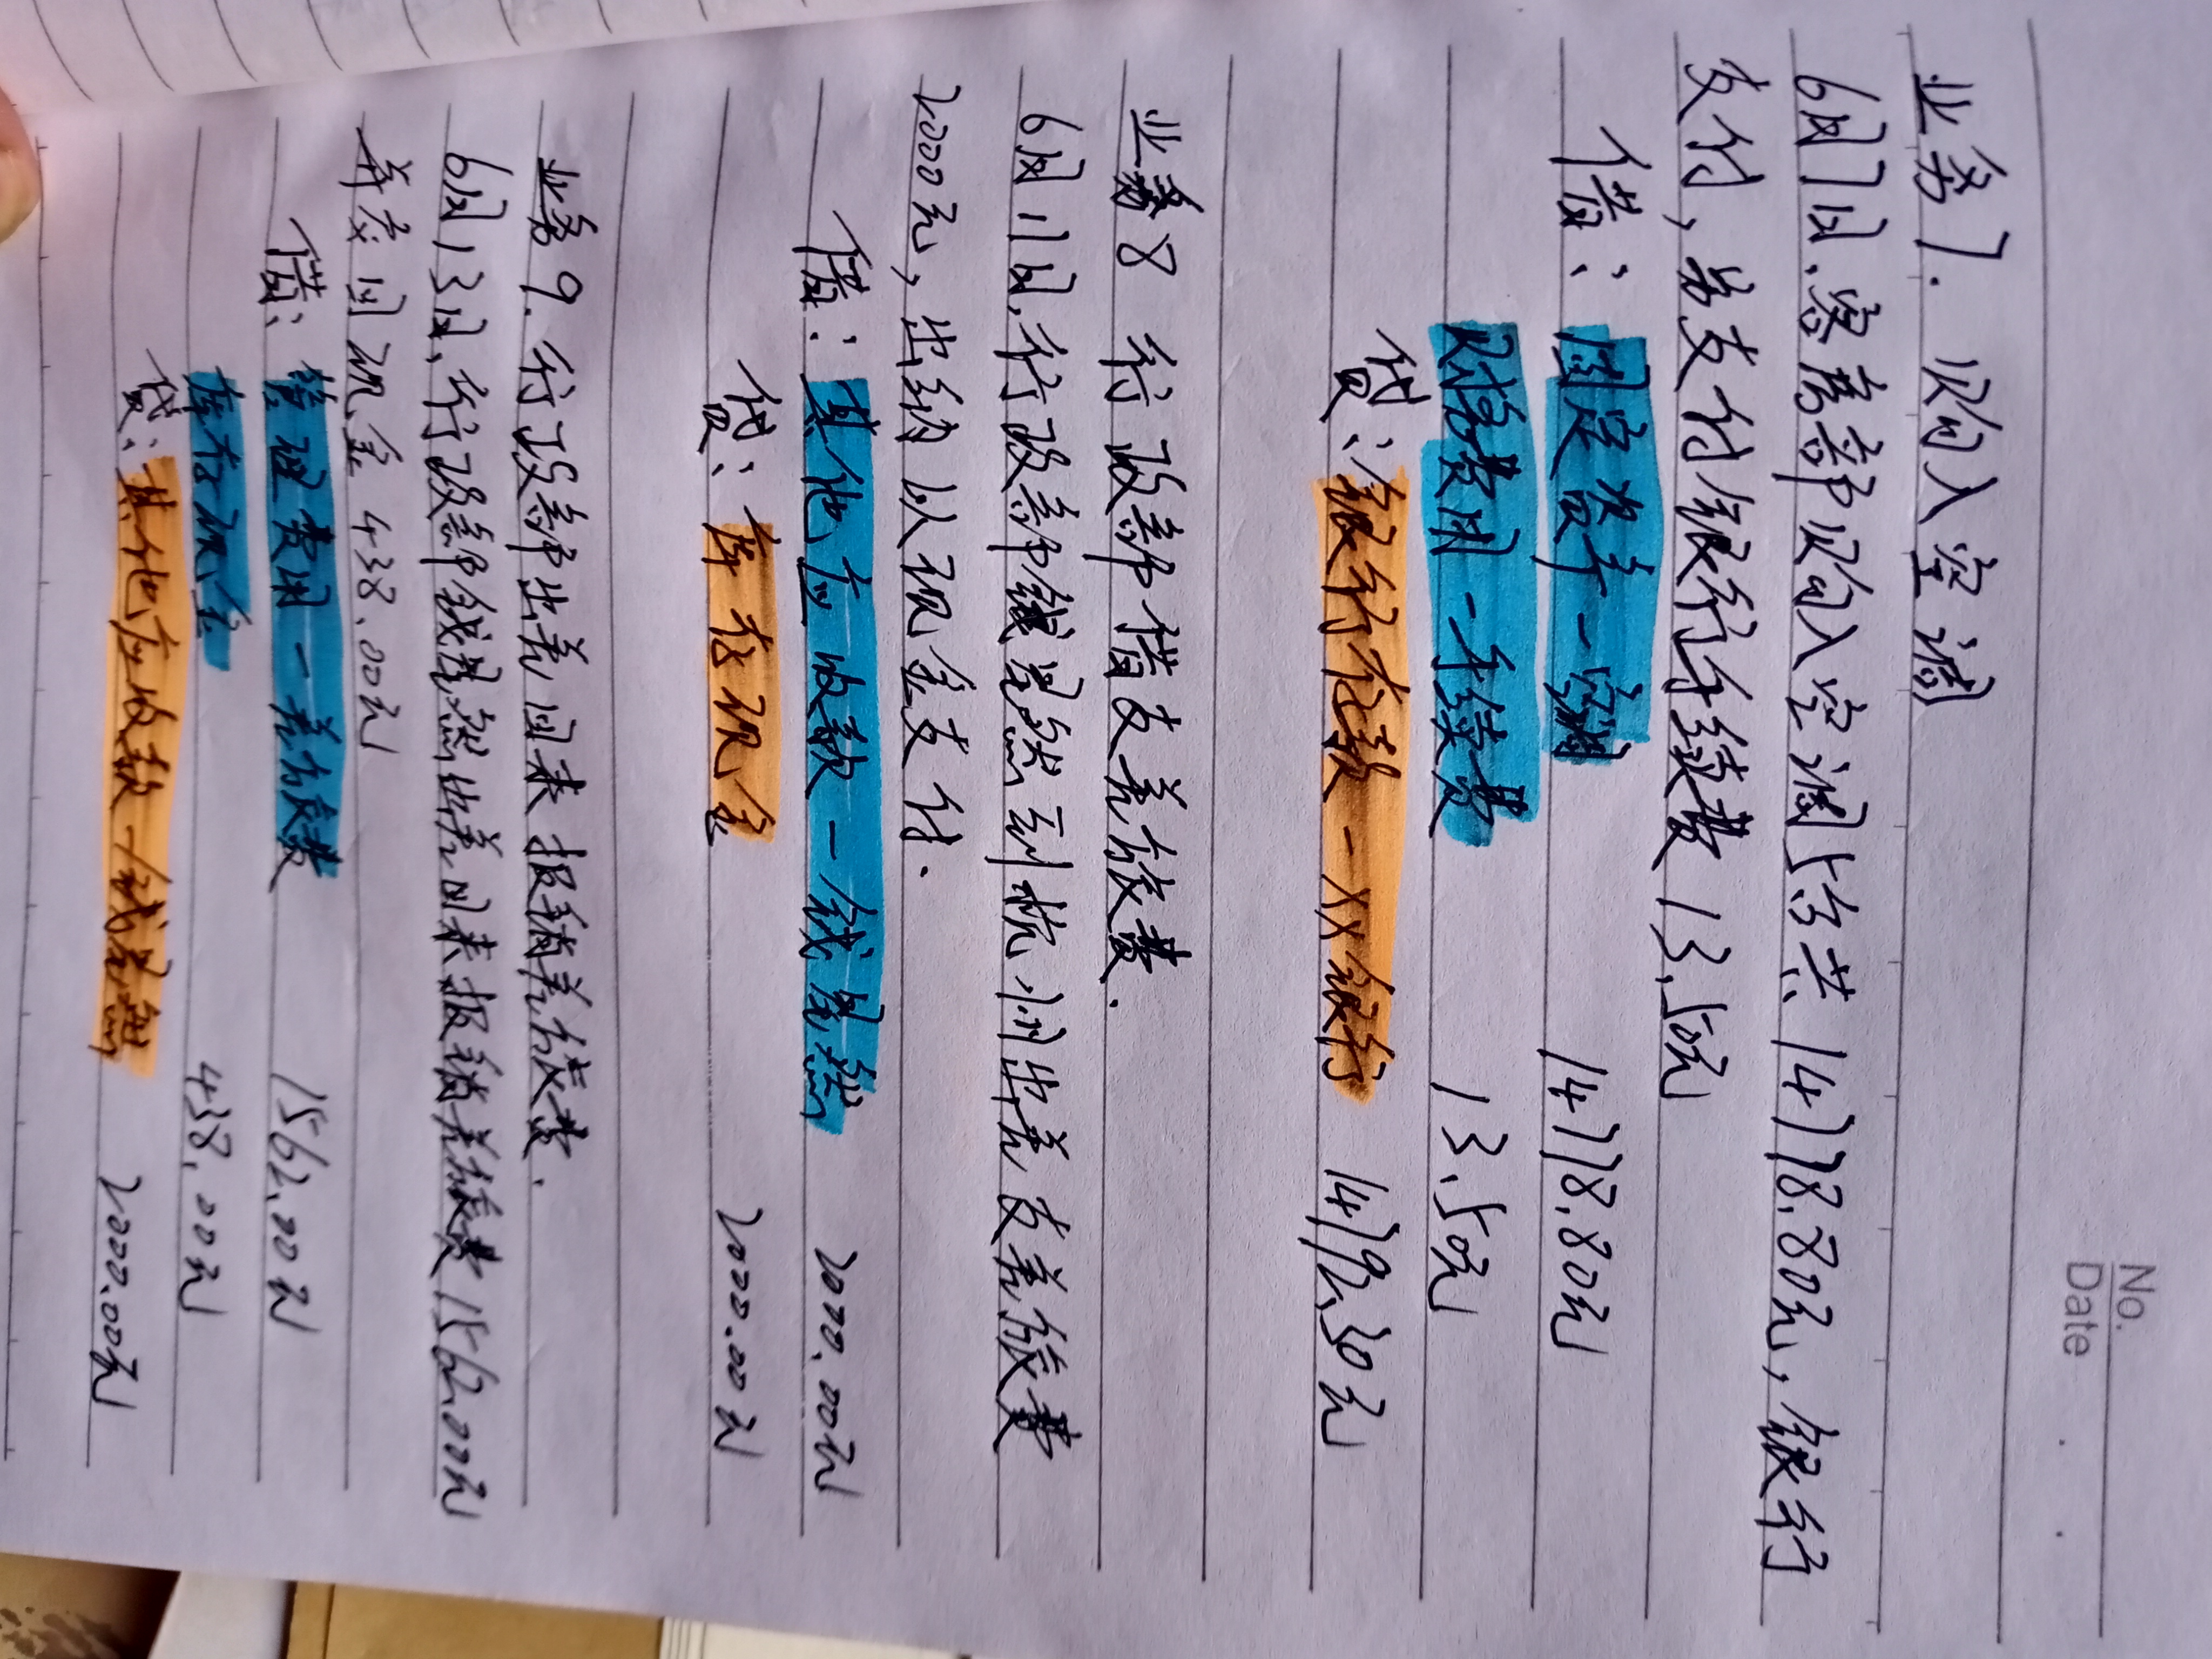 No.
Date
业务7. 购入空调
6月7日.客房部购入空调5台共14778.80元,银行
支付,另支付银行手续费13.50元
借:固定资产-空调 14778.80元
财务费用-手续费 13.50元
贷:银行存款-XX银行 14792.30元
业务8 行政部借支差旅费.
6月11日.行政部钱昱然到杭州出差支差旅费
2000元,出纳以现金支付.
借:其他应收款-钱昱然 2000.00元
贷:库存现金 2000.00元
业务9.行政部出差回来报销差旅费.
6月13日,行政部钱昱然出差回来报销差旅费1562.00元
并交回现金438.00元
借:管理费用-差旅费 1562.00元
库存现金 438.00元
贷:其他应收款-钱昱然 2000.00元